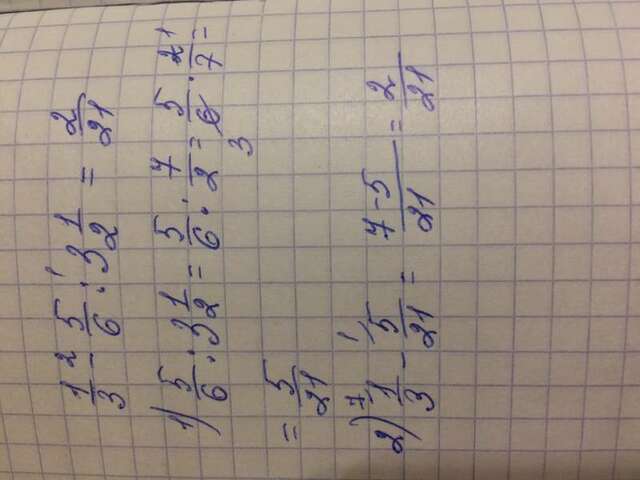 1/3 - 5/6 : 3 1/2 = 2/21
1) 5/6 : 3 1/2 = 5/6 : 7/2 = 5/6 · 2/7 =
= 5/21
2) 1/3 - 5/21 = 7-5/21 = 2/21